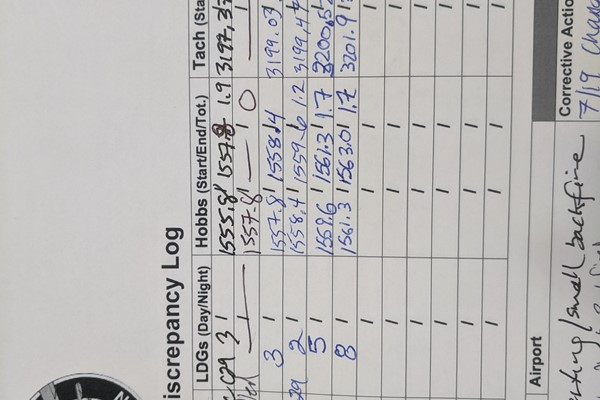 iscrepancy Log
LDGs (Day/Night) Hobbs (Start/End/Tot.) Tach (Sta
C29 3 / 1555.8 / 1557.8 / 1.9 3197.3
/ 1557.8 / — / 0
3 / 1557.8 / 1558.4 / 3199.03
29 2 / 1558.4 / 1559.6 / 1.2 3199.47
5 / 1559.6 / 1561.3 / 1.7 3200.5
8 / 1561.3 / 1563.0 / 1.7 3201.9
/ / /
/ / /
/ / /
/ / /
/ / /
/ / /
Airport Corrective Actio
small backfire 7/19